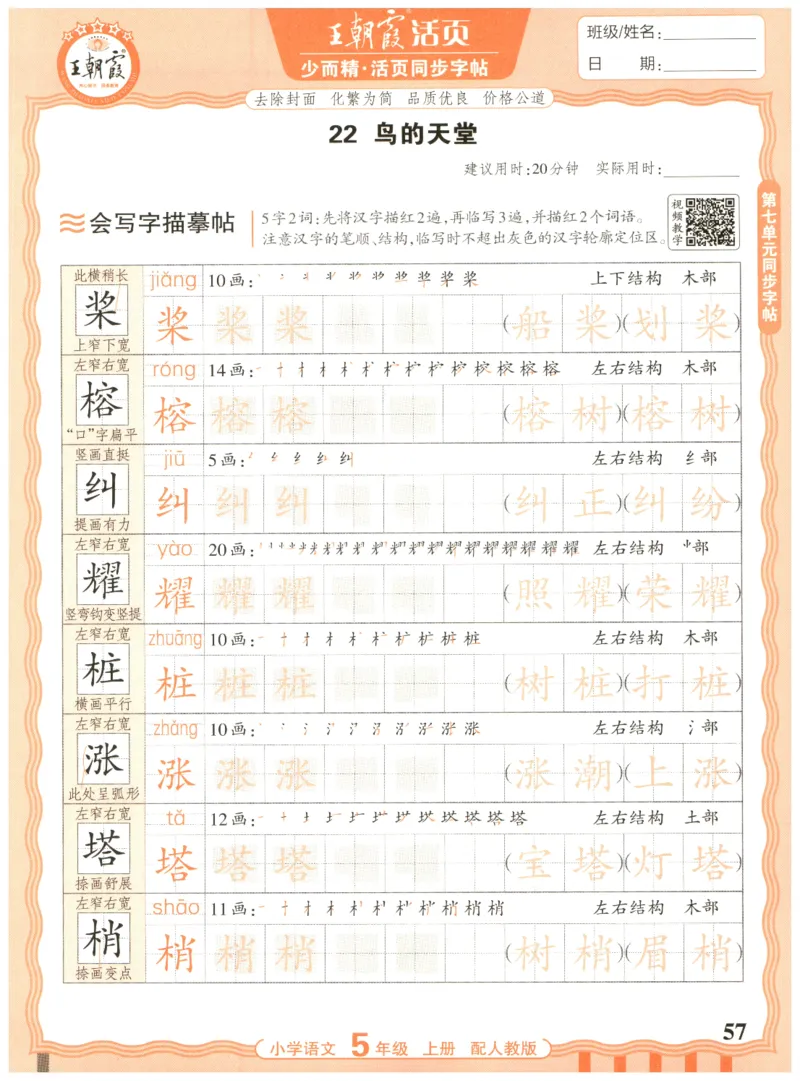 王朝霞
王朝霞 活页
少而精·活页同步字帖
班级/姓名:
日 期:
去除封面 化繁为简 品质优良 价格公道
22 鸟的天堂
建议用时:20分钟 实际用时:
会写字描摹帖
5字2词:先将汉字描红2遍,再临写3遍,并描红2个词语。
注意汉字的笔顺、结构,临写时不超出灰色的汉字轮廓定位区。
视频教学
第七单元同步字帖
此横稍长 jiǎng 10画: 上下结构 木部
桨 桨 桨 桨 (船桨)(划桨)
上窄下宽
左窄右宽 róng 14画: 左右结构 木部
榕 榕 榕 榕 (榕树)(榕树)
“口”字扁平
竖画直挺 jiū 5画: 左右结构 纟部
纠 纠 纠 纠 (纠正)(纠纷)
提画有力
左窄右宽 yào 20画: 左右结构 ⺌部
耀 耀 耀 耀 (照耀)(荣耀)
竖弯钩变竖提
左窄右宽 zhuāng 10画: 左右结构 木部
桩 桩 桩 桩 (树桩)(打桩)
横画平行
左窄右宽 zhǎng 10画: 左右结构 氵部
涨 涨 涨 涨 (涨潮)(上涨)
此处呈弧形
左窄右宽 tǎ 12画: 左右结构 土部
塔 塔 塔 塔 (宝塔)(灯塔)
捺画舒展
左窄右宽 shāo 11画: 左右结构 木部
梢 梢 梢 梢 (树梢)(眉梢)
捺画变点
57
小学语文 5年级 上册 配人教版